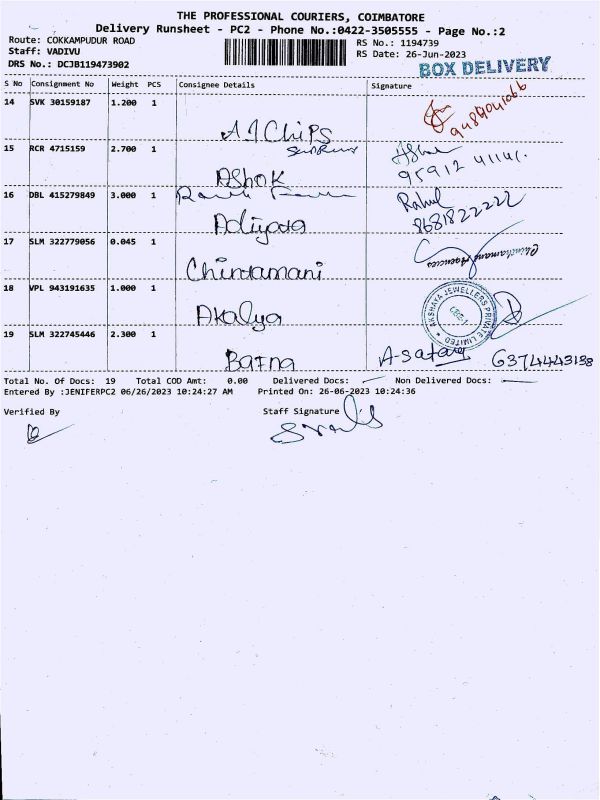 THE PROFESSIONAL COURIERS, COIMBATORE
Delivery Runsheet - PC2 - Phone No.:0422-3505555 - Page No.:2
Route: COKKAMPUDUR ROAD
RS No.: 1194739
Staff: VADIVU
RS Date: 26-Jun-2023
DRS No.: DCJB119473902
BOX DELIVERY
S No Consignment No Weight PCS Consignee Details Signature
14 SVK 30159187 1.200 1
A1 Chips
15 RCR 4715159 2.700 1
AShok
95912 41141.
16 DBL 415279849 3.000 1
Rahul
8681822222
17 SLM 322779056 0.045 1
Chintamani Agencies
Chintamani
18 VPL 943191635 1.000 1
AKSHAYA JEWELLERS PRIVATE LIMITED
Akalya
19 SLM 322745446 2.300 1
Bafna
6374443138
Total No. Of Docs: 19 Total COD Amt: 0.00 Delivered Docs: Non Delivered Docs:
Entered By :JENIFERPC2 06/26/2023 10:24:27 AM Printed On: 26-06-2023 10:24:36
Verified By Staff Signature